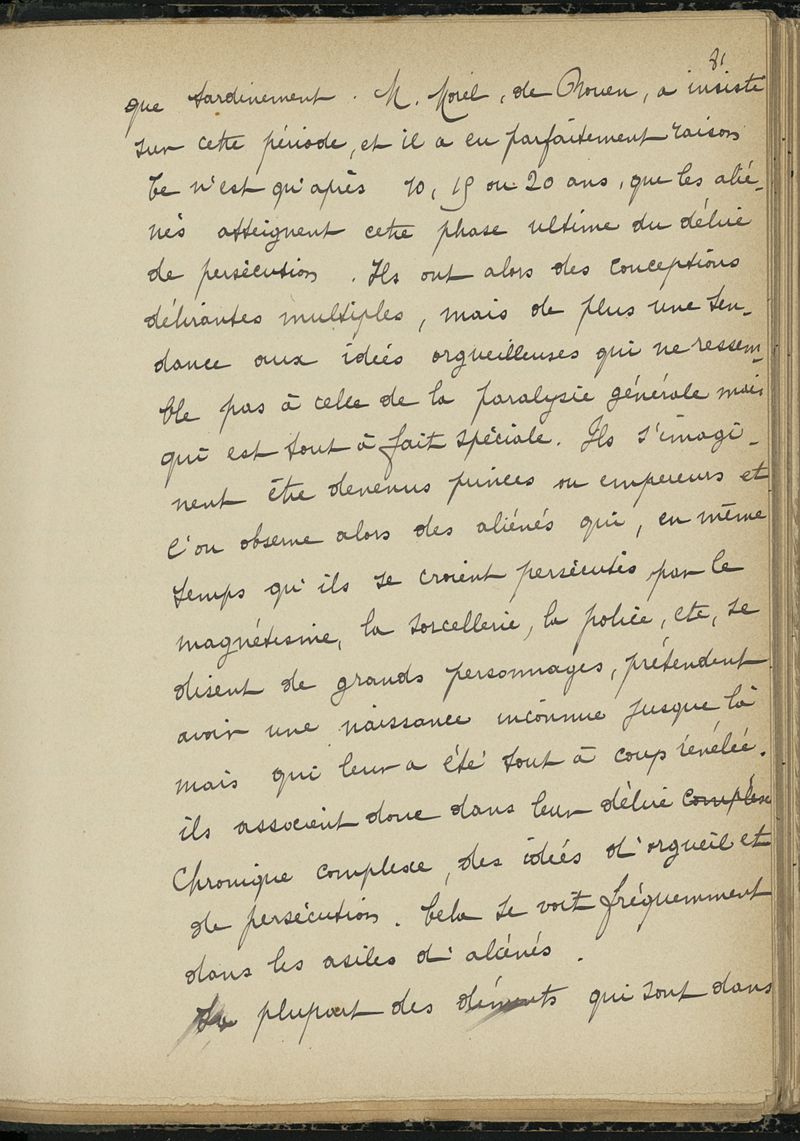 81
que tardivement. M. Morel, de Rouen, a insisté
sur cette période, et il a eu parfaitement raison
Ce n'est qu'après 10, 15 ou 20 ans, que les alié-
nés atteignent cette phase ultime du délire
de persécution. Ils ont alors des conceptions
délirantes multiples, mais de plus une ten-
dance aux idées orgueilleuses qui ne ressem-
ble pas à celle de la paralysie générale mais
qui est tout à fait spéciale. Ils s'imagi-
nent être devenus princes ou empereurs et
l'on observe alors des aliénés qui, en même
temps qu'ils se croient persécutés par le
magnétisme, la sorcellerie, la police, etc, se
disent de grands personnages, prétendent
avoir une naissance inconnue jusque là
mais qui leur a été tout à coup révélée.
ils associent donc dans leur délire complexe
Chronique complexe, des idées d'orgueil et
de persécution. Cela se voit fréquemment
dans les asiles d'aliénés.
La plupart des déments qui sont dans